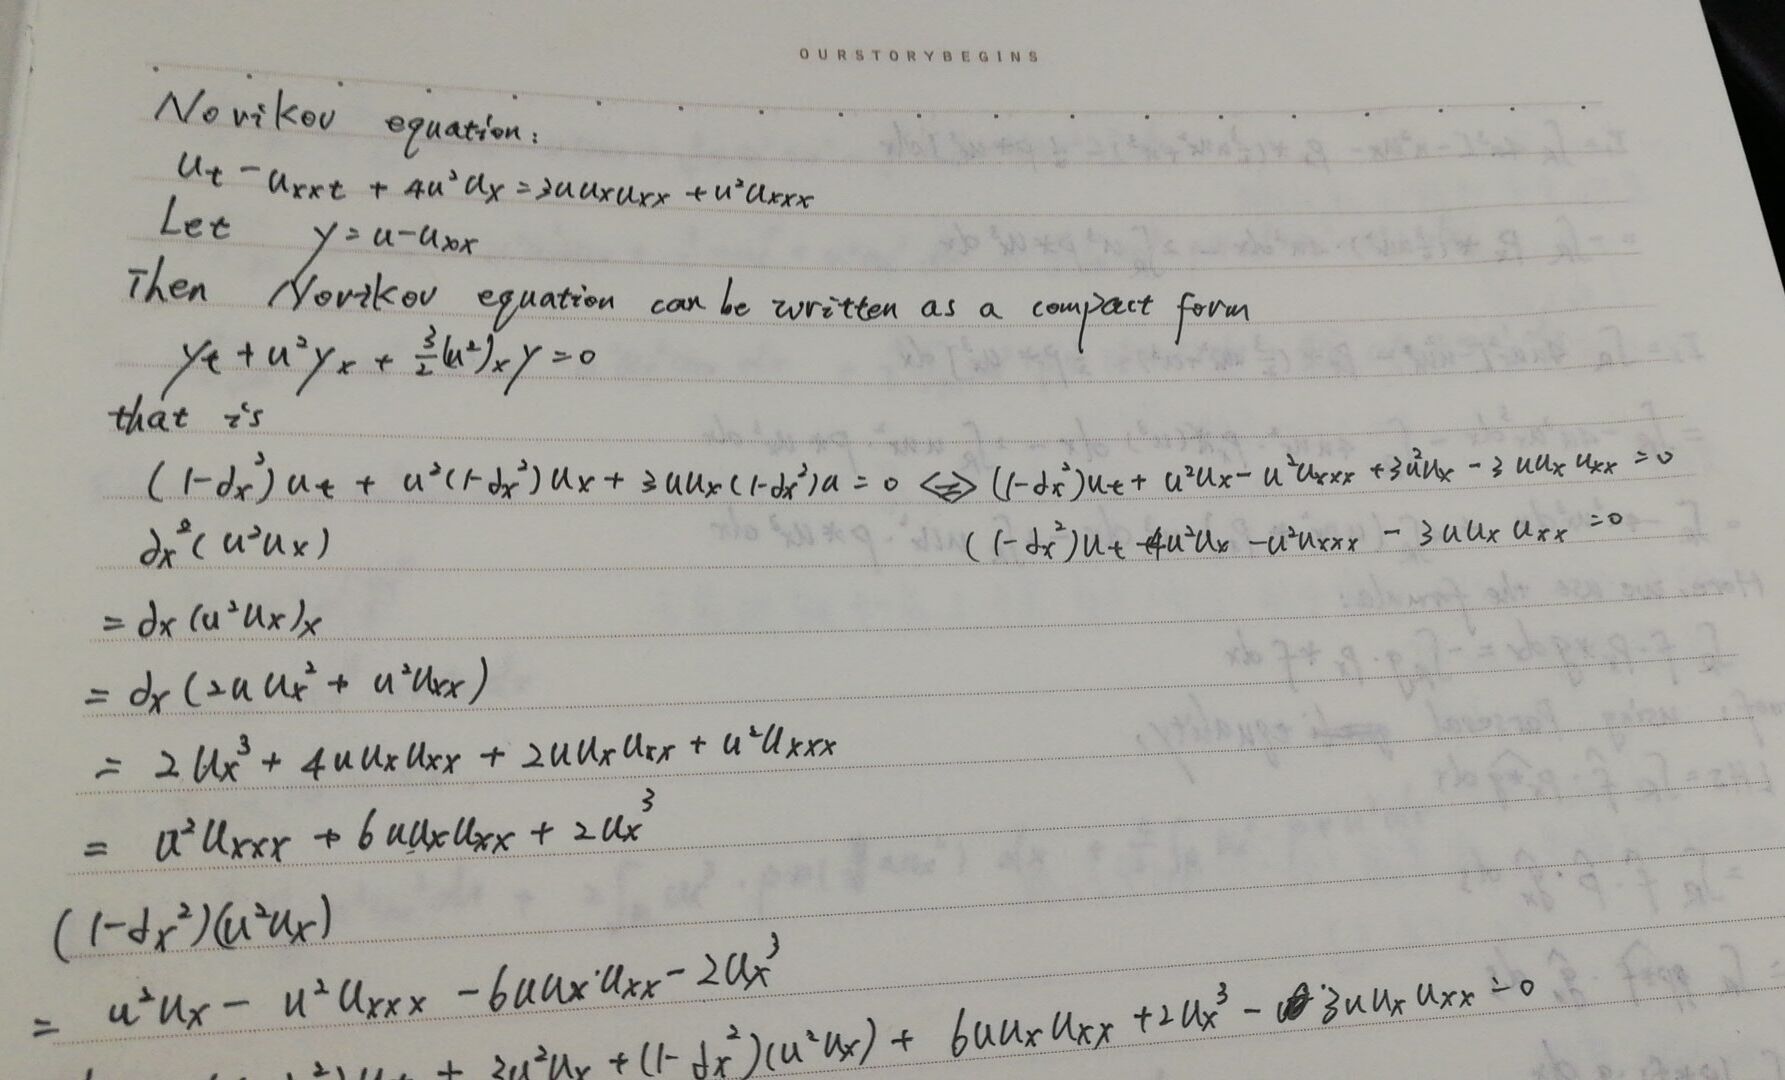 OURSTORYBEGINS
Novikov equation:
u_t - u_xxt + 4u²u_x = 3uu_xu_xx + u²u_xxx
Let y = u - u_xx
Then Novikov equation can be written as a compact form
y_t + u²y_x + 3/2(u²)_x y = 0
that is
(1-∂x²)u_t + u²(1-∂x²)u_x + 3uu_x(1-∂x²)u = 0 ⇔ (1-∂x²)u_t + u²u_x - u²u_xxx + 3u²u_x - 3uu_xu_xx = 0
∂x²(u²u_x) (1-∂x²)u_t + 4u²u_x - u²u_xxx - 3uu_xu_xx = 0
= ∂x(u²u_x)_x
= ∂x(2uu_x² + u²u_xx)
= 2u_x³ + 4uu_xu_xx + 2uu_xu_xx + u²u_xxx
= u²u_xxx + 6uu_xu_xx + 2u_x³
(1-∂x²)(u²u_x)
= u²u_x - u²u_xxx - 6uu_xu_xx - 2u_x³
+ 3u²u_x + (1-∂x²)(u²u_x) + 6uu_xu_xx + 2u_x³ - 3uu_xu_xx = 0